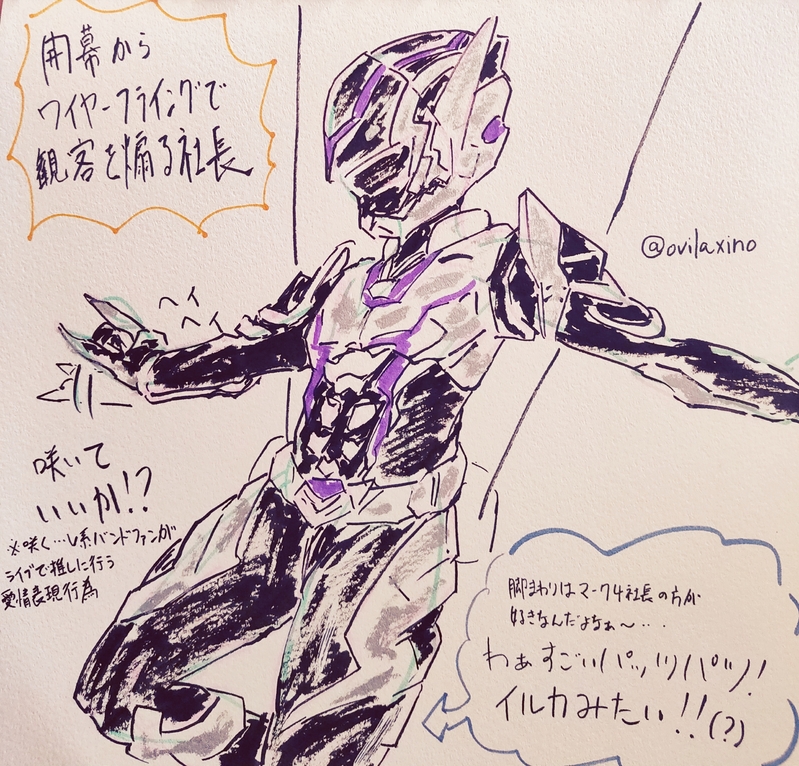 開幕から
ワイヤーフライングで
観客を煽る社長
@ovilaxino
ヘイ
ヘイ
咲いて
いいか!?
※咲く…V系バンドファンが
ライブで推しに行う
愛情表現行為
脚まわりはマーク4社長の方が
好きなんだよなぁ〜・・・
わぁすごいパッツパツ!
イルカみたい!!(?)